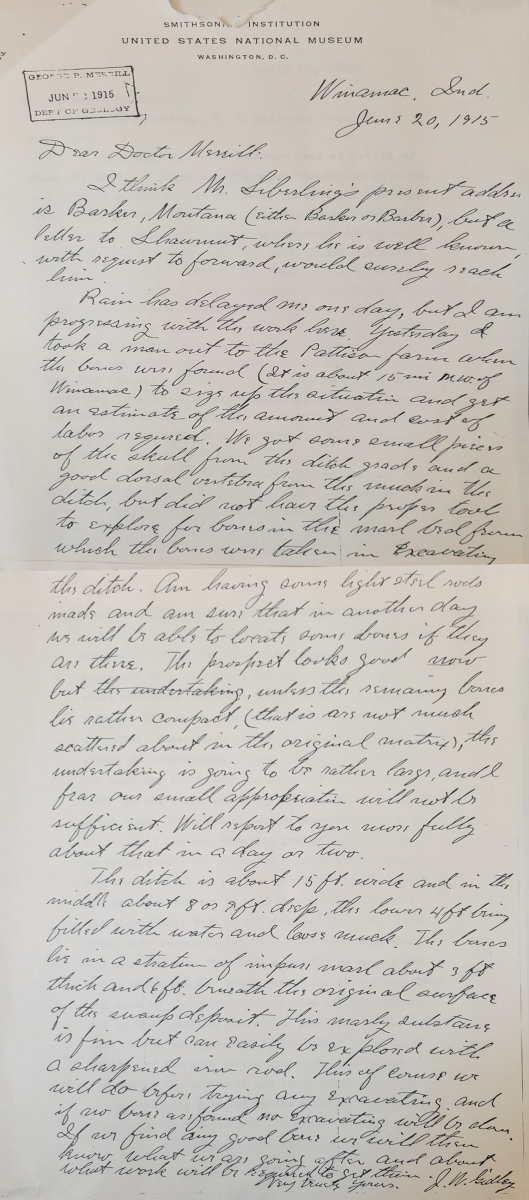 SMITHSON INSTITUTION
UNITED STATES NATIONAL MUSEUM
WASHINGTON, D. C.
GEORGE P. MERRILL
JUN 1915
DEPT OF GEOLOGY
Winamac, Ind.
June 20, 1915
Dear Doctor Merrill:
I think Mr. Siberling's present address
is Barker, Montana (either Barker or Barber), but a
letter to Shawmut, where he is well known,
with request to forward, would surely reach
him.
Rain has delayed me one day, but I am
progressing with the work here. Yesterday I
took a man out to the Pattison farm when
the bones were found (It is about 15 mi N.W. of
Winamac) to size up the situation and get
an estimate of the amount and cost of
labor required. We got some small pieces
of the skull from the ditch grade and a
good dorsal vertebra from the muck in the
ditch, but did not have the proper tool
to explore for bones in the marl bed from
which the bones were taken in excavating
the ditch. Am having some light steel rods
made and am sure that in another day
we will be able to locate some bones if they
are there. The prospect looks good now
but the undertaking, unless the remaining bones
lie rather compact, (that is are not much
scattered about in the original matrix), the
undertaking is going to be rather large, and I
fear our small appropriation will not be
sufficient. Will report to you more fully
about that in a day or two.
The ditch is about 15 ft. wide and in the
middle about 8 or 9 ft. deep, the lower 4 ft being
filled with water and loose muck. The bones
lie in a stratum of impure marl about 3 ft
thick and 6 ft. beneath the original surface
of the swamp deposit. This marly substance
is firm but can easily be explored with
a sharpened iron rod. This of course we
will do before trying any excavating and
if no bones are found no excavating will be done.
If we find any good bone we will then
know what we are going after and about
what work will be required to get them.
Very truly yours, J. W. Gidley